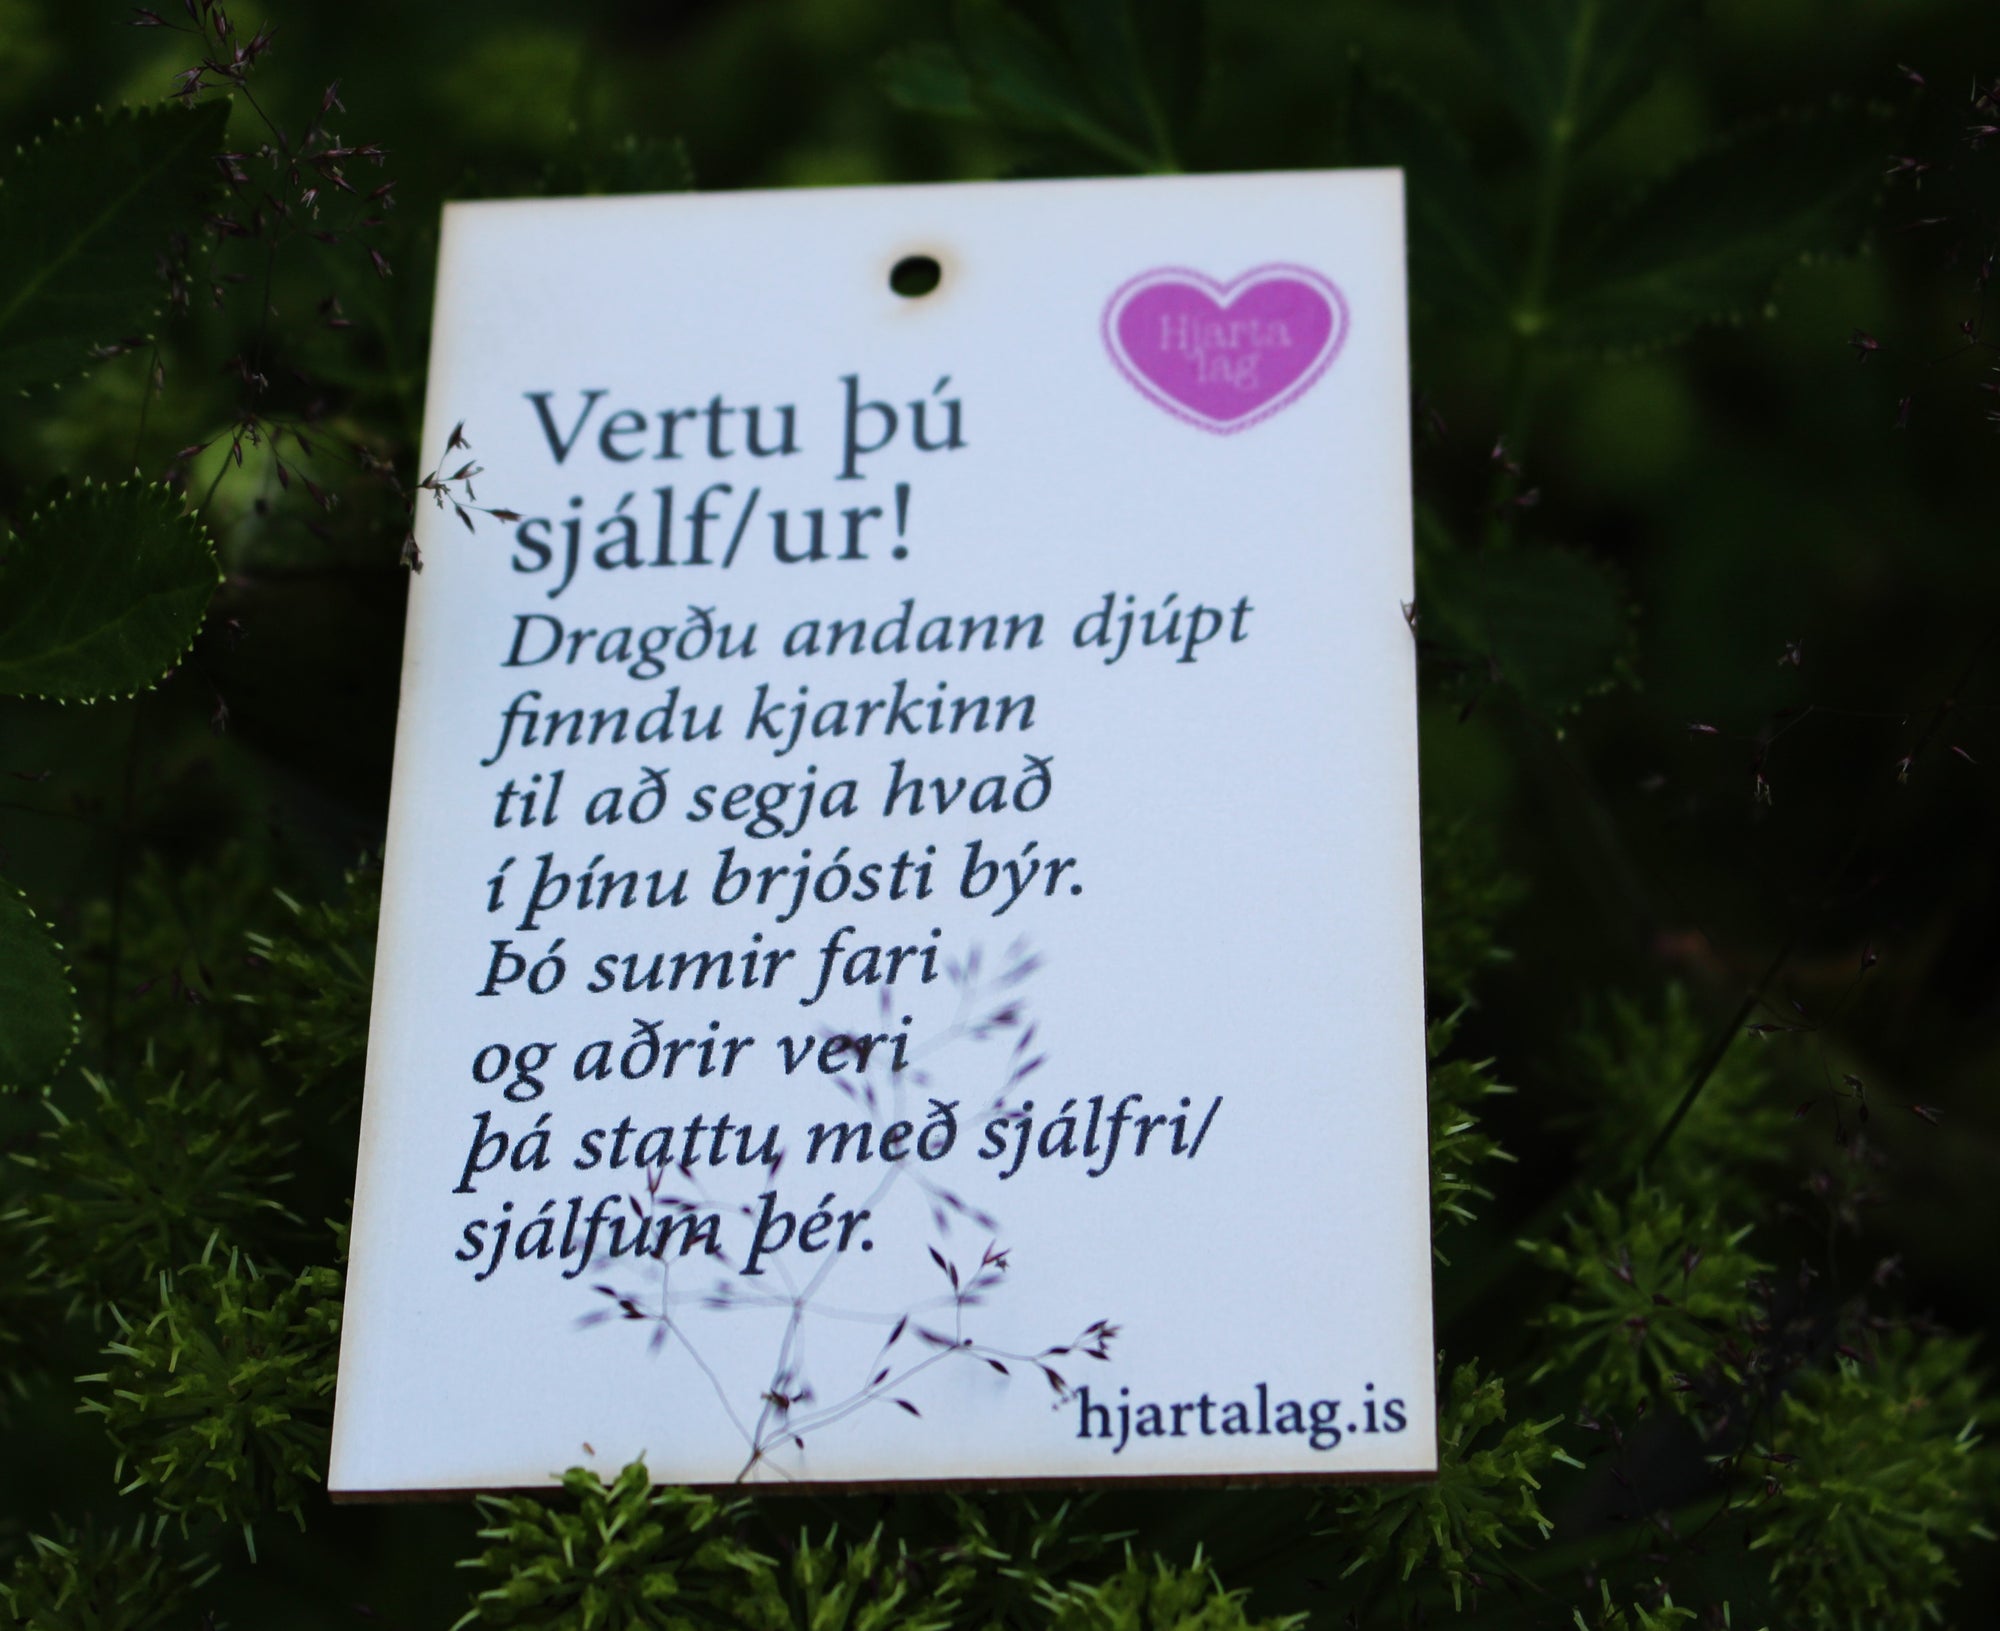 Hjarta
lag
Vertu þú
sjálf/ur!
Dragðu andann djúpt
finndu kjarkinn
til að segja hvað
í þínu brjósti býr.
Þó sumir fari
og aðrir veri
þá stattu með sjálfri/
sjálfum þér.
hjartalag.is